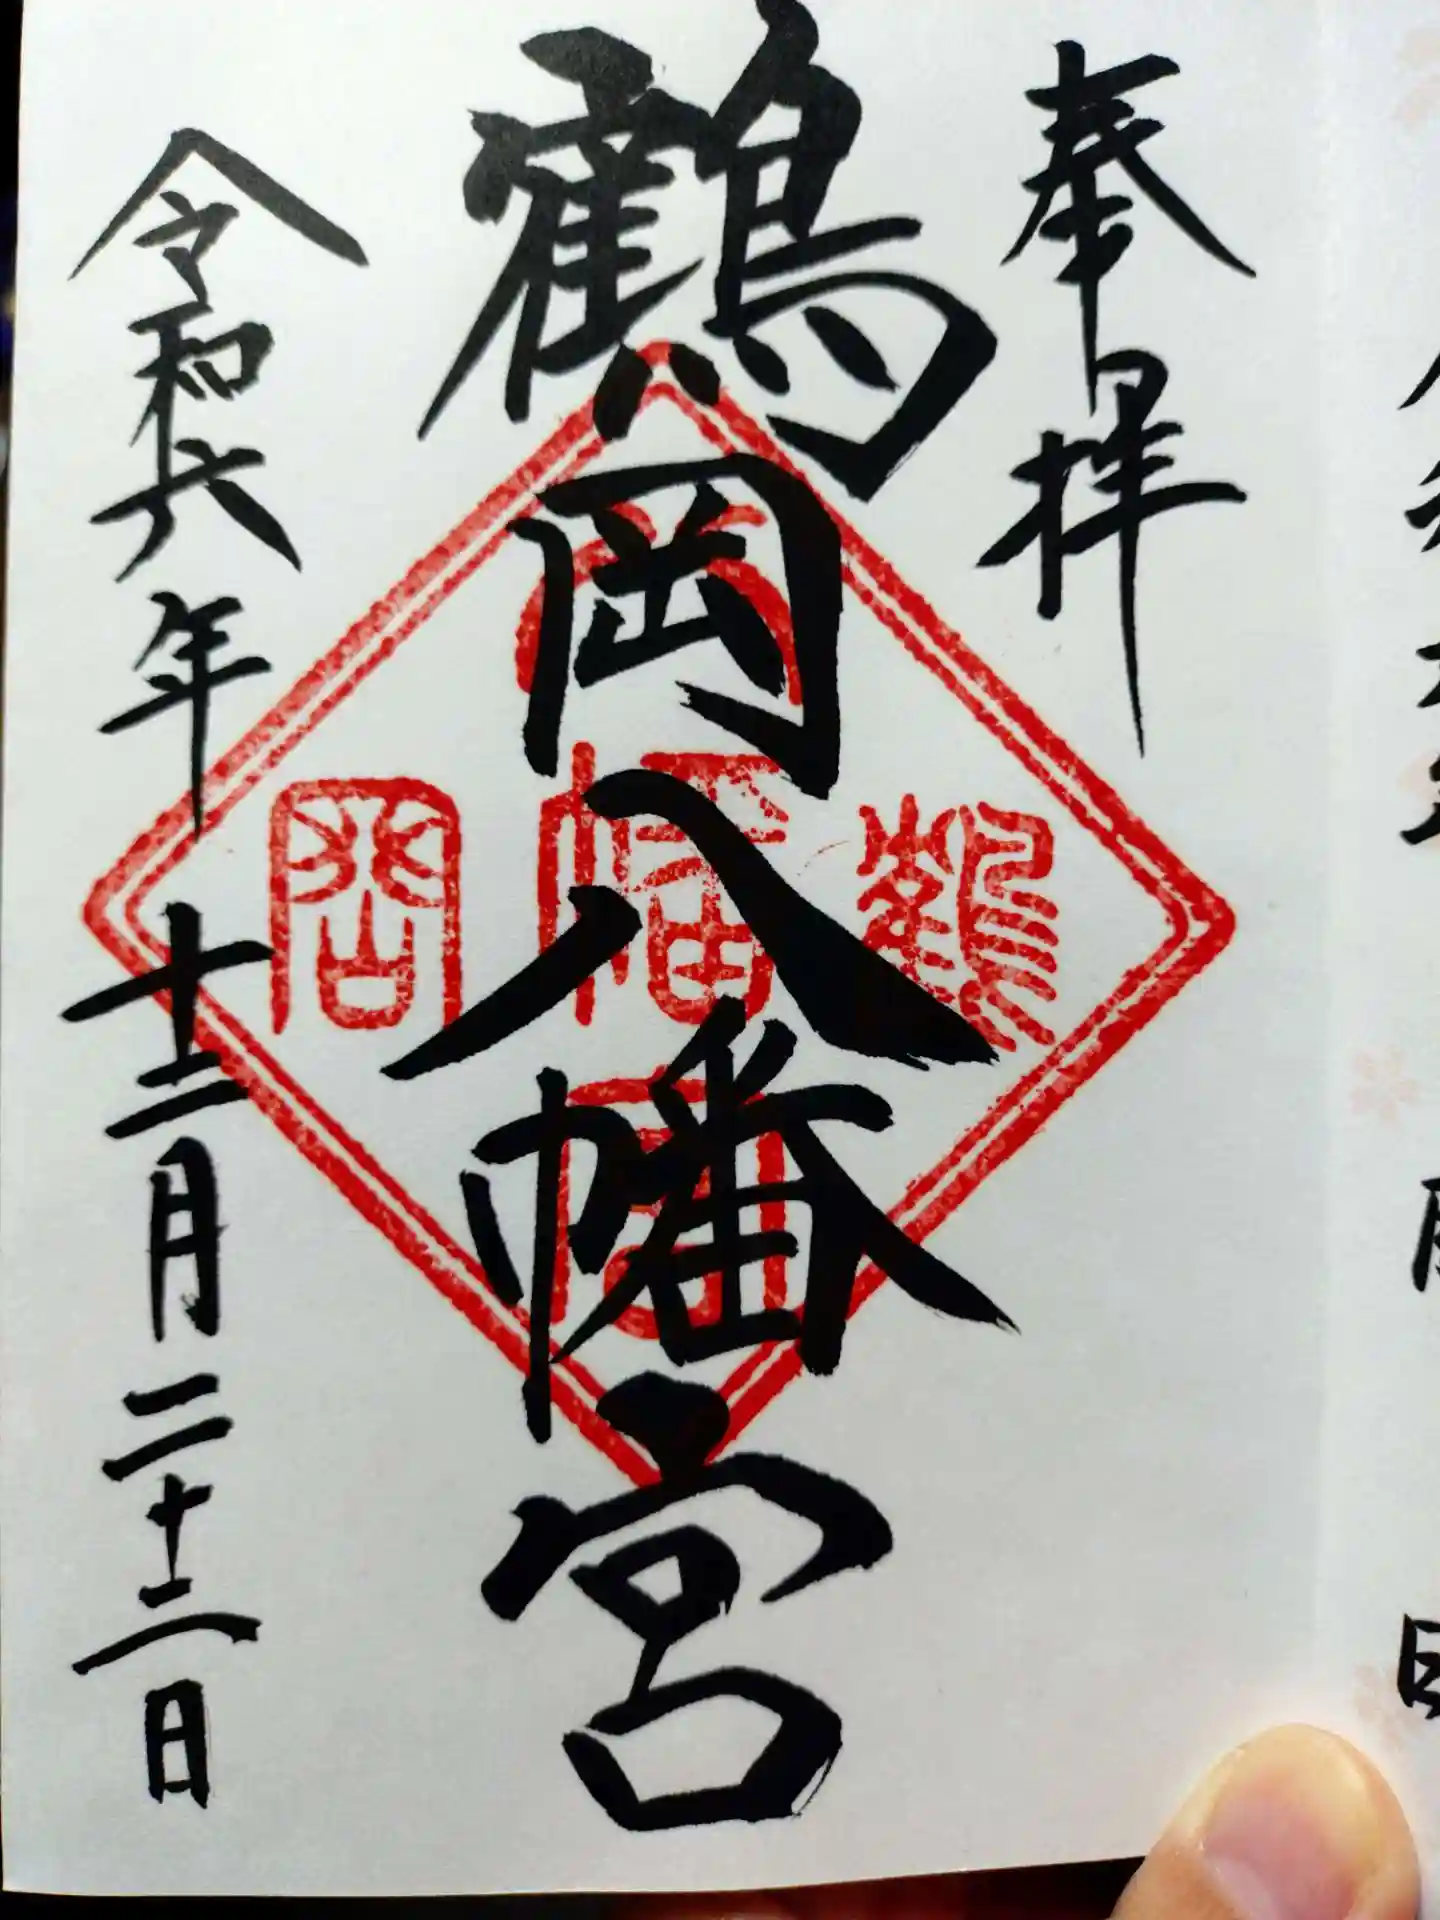 奉拝
鶴岡八幡宮
令和六年十二月二十二日
鶴
八
幡
宮
岡